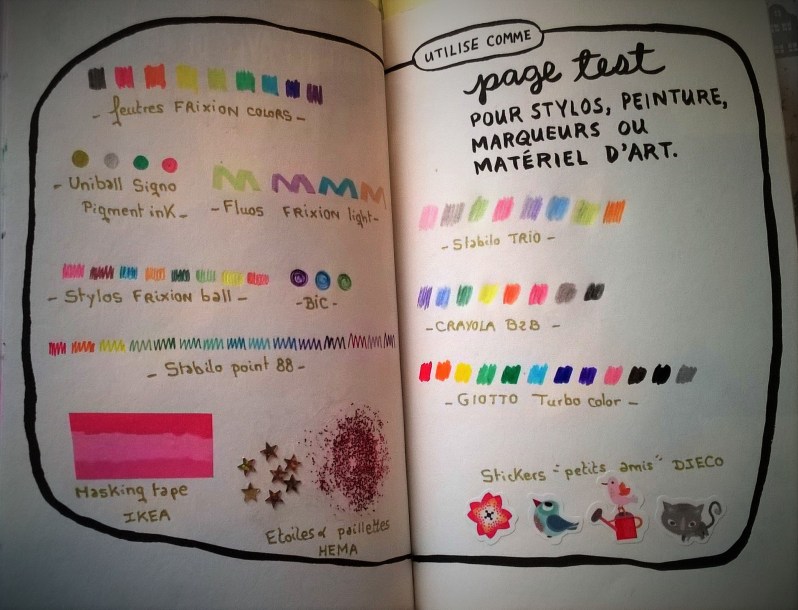 - feutres FRIXION COLORS -
- Uniball Signo
Pigment ink -
- Fluos FRIXION light -
- Stylos FRIXION ball -
- BIC -
- Stabilo point 88 -
Masking tape
IKEA
Etoiles & paillettes
HEMA
UTILISE COMME
page test
POUR STYLOS, PEINTURE,
MARQUEURS OU
MATÉRIEL D'ART.
- Stabilo TRIO -
- CRAYOLA B2B -
- GIOTTO Turbo color -
Stickers "petits amis" DJECO